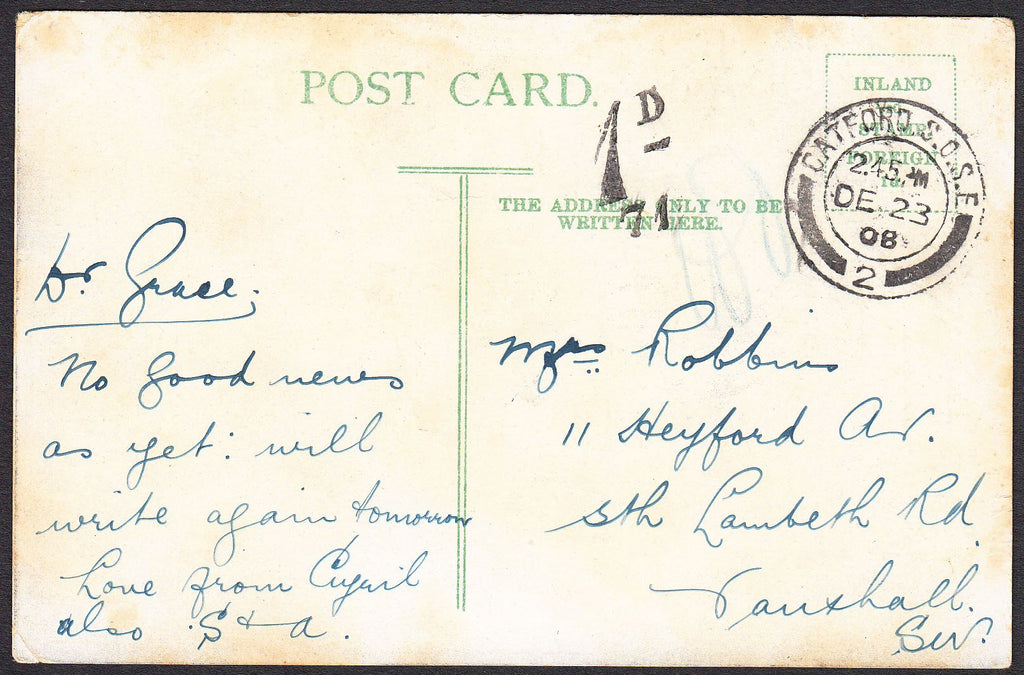 POST CARD.
INLAND
STAMP
FOREIGN
1d.
CATFORD. S.O.S.E
2.45 PM
DE 23
08
2
1D
71
THE ADDRESS ONLY TO BE
WRITTEN HERE.
Dr Grace.
No good news
as yet: will
write again tomorrow
Love from Cyril
also S + A.
Mrs Robbins
11 Heyford Av.
Sth Lambeth Rd
Vauxhall.
SW.